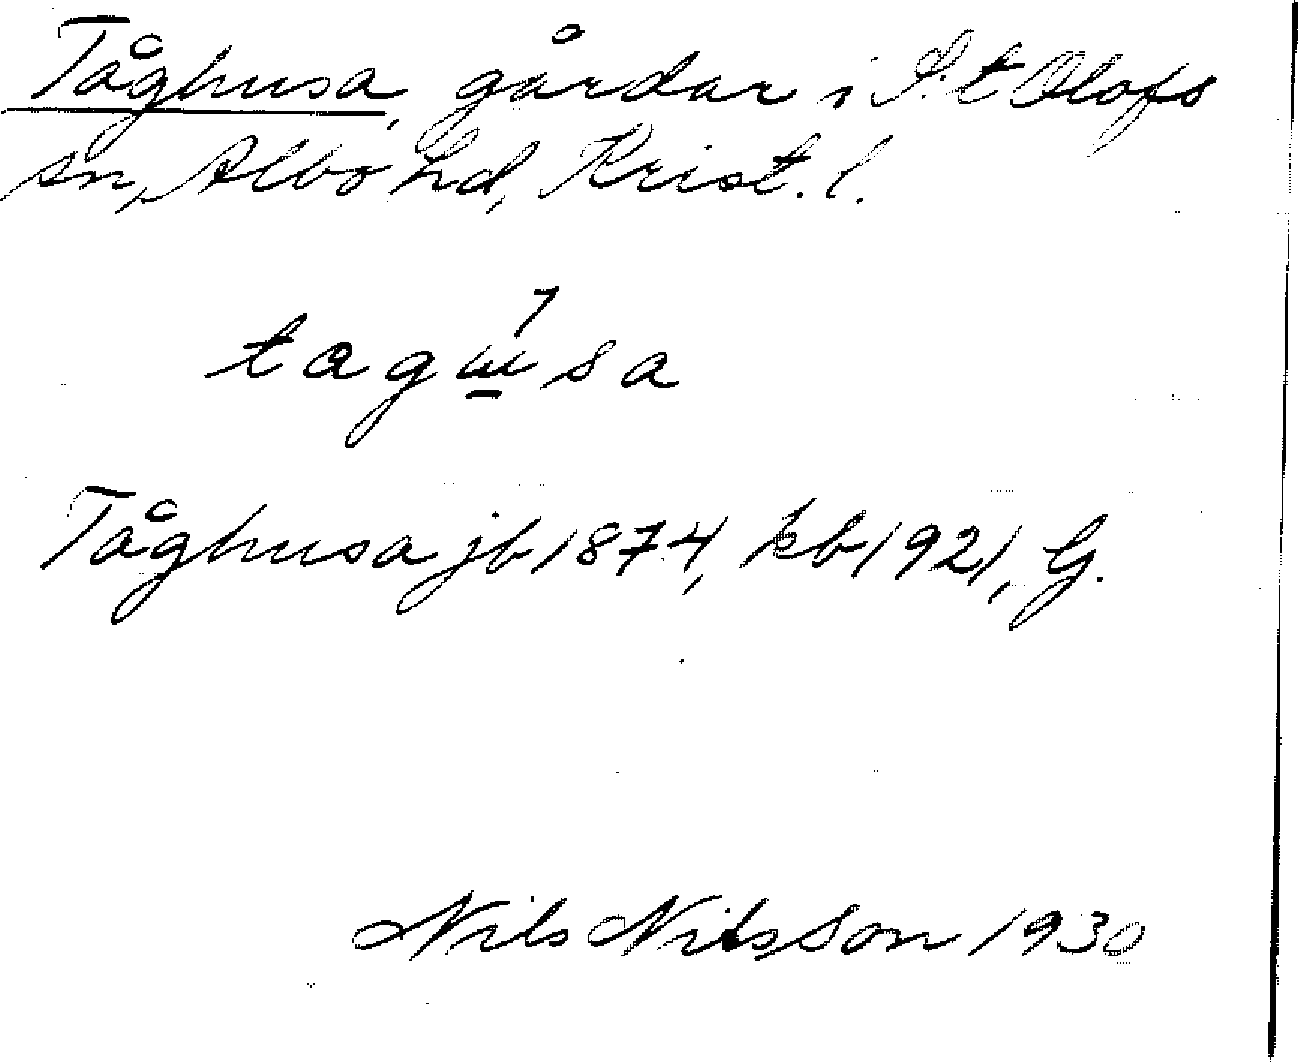 Tåghusa, gårdar i S:t Olofs
sn, Albo hd, Krist. l.
tagɯ́sa
Tåghusa jb 1874, kb 1921, G.
Nils Nilsson 1930